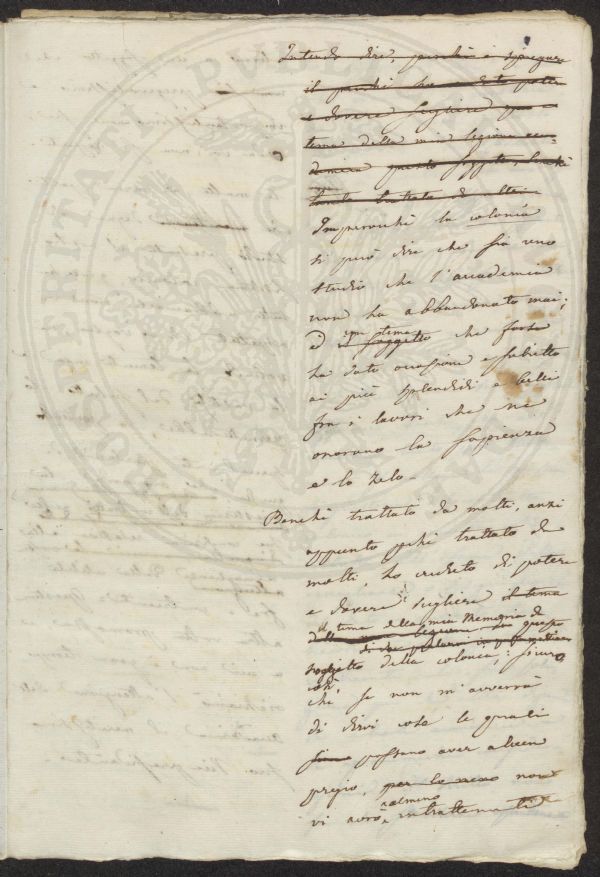 Intendo dire, perché è spiegare
il perché ho creduto poter
e dovere scegliere
tema della mia lezione acca-
demica questo soggetto, benché
tanto trattato da altri
Imperocchè la colonía
si può dire che sia uno
studio che l'accademia
non ha abbandonato mai;
ed un tema
è il soggetto che forse
ha dato occasione e subietto
ai più splendidi e belli
fra i lavori che ne
onorano la sapienza
e lo zelo.
Benchè trattato da molti, anzi
appunto perchè trattato da
molti, ho creduto di potere
e dovere scegliere il tema
il tema della mia Memoria
questo
soggetto della colonía; sicuro
che se non m'avverrà
di dirvi cose le quali
sieno possano aver alcun
pregio, per lo meno non
almeno
vi avrò, intrattenuti